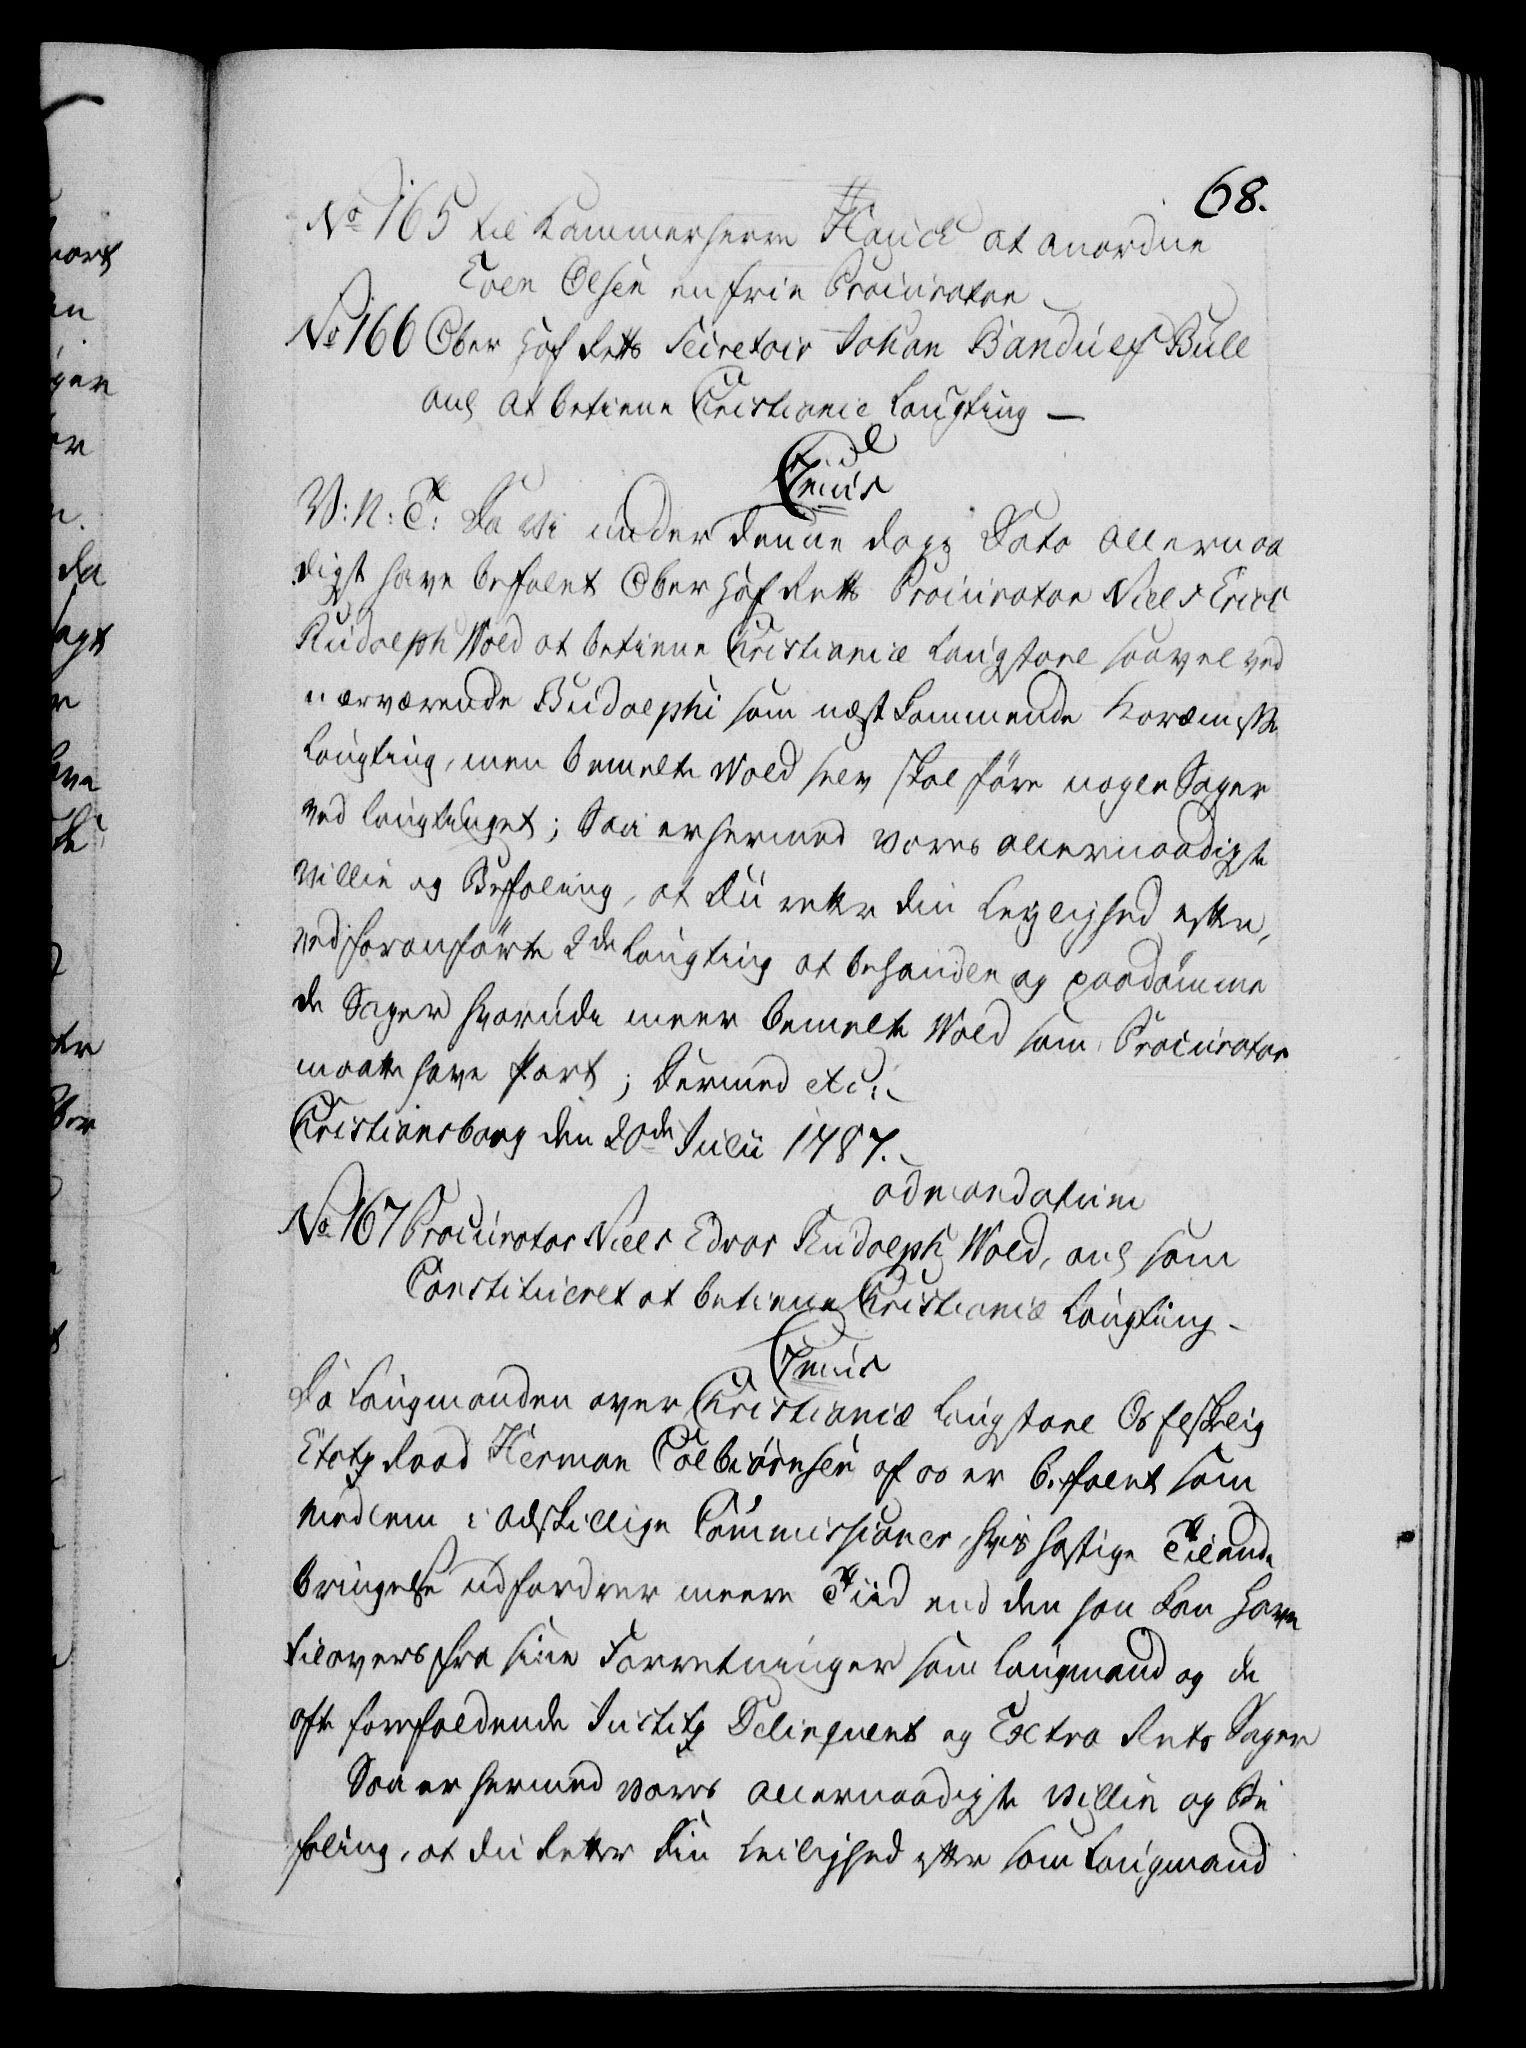 68.
No 165 til Kammerherre Hauch at anordne
Even Olsen en frie Procurator
No 166 Ober Hof Retts Secretair Johan Randulf Bull
ang at betiene Christianiæ Laugting —
Cujus
V: N: T: Da vi under denne Dags Dato allernaa
digst have befalet Ober Hof Retts Procurator Niels
Rudolph Wold at betiene Christianiæ Laugstoel saavel ved
nærværende Budolphi som næstkommende
Laugting, men bemelte Wold selv skal føre nogle Sager
ved Laugtinget; Saa er hermed vores allernaadigste
Villie og Befaling, at Du rette din Leylighed efter,
ved foranførte 2de Laugting at behandle og paadømme
de Sager hvorudi meer bemelte Wold som Procurator
maatte have Part; Dermed etc:
Christiansborg den 20de Julii 1787.
ad mandatum
No 167 Procurator Niels Edvar Rudolph Wold, ang som
Constitueret at betiene Christianiæ Laugting
Cujus
Da Laugmanden over Christianiæ Laugstoel Os elskelig
Etatz Raad Herman Colbiørnsen af os er befalet som
Medlem i adskillige Commissioner, hvis hastige Tilende
bringelse udfordrer meere Tiid end den han kan have
tilovers fra sine Forretninger som Laugmand og de
ofte forefaldende Justitz Delinquent og Extra Rets Sager
Saa er hermed vores allernaadigste Villie og Be
faling, at du retter din Leilighed efter som Laugmand